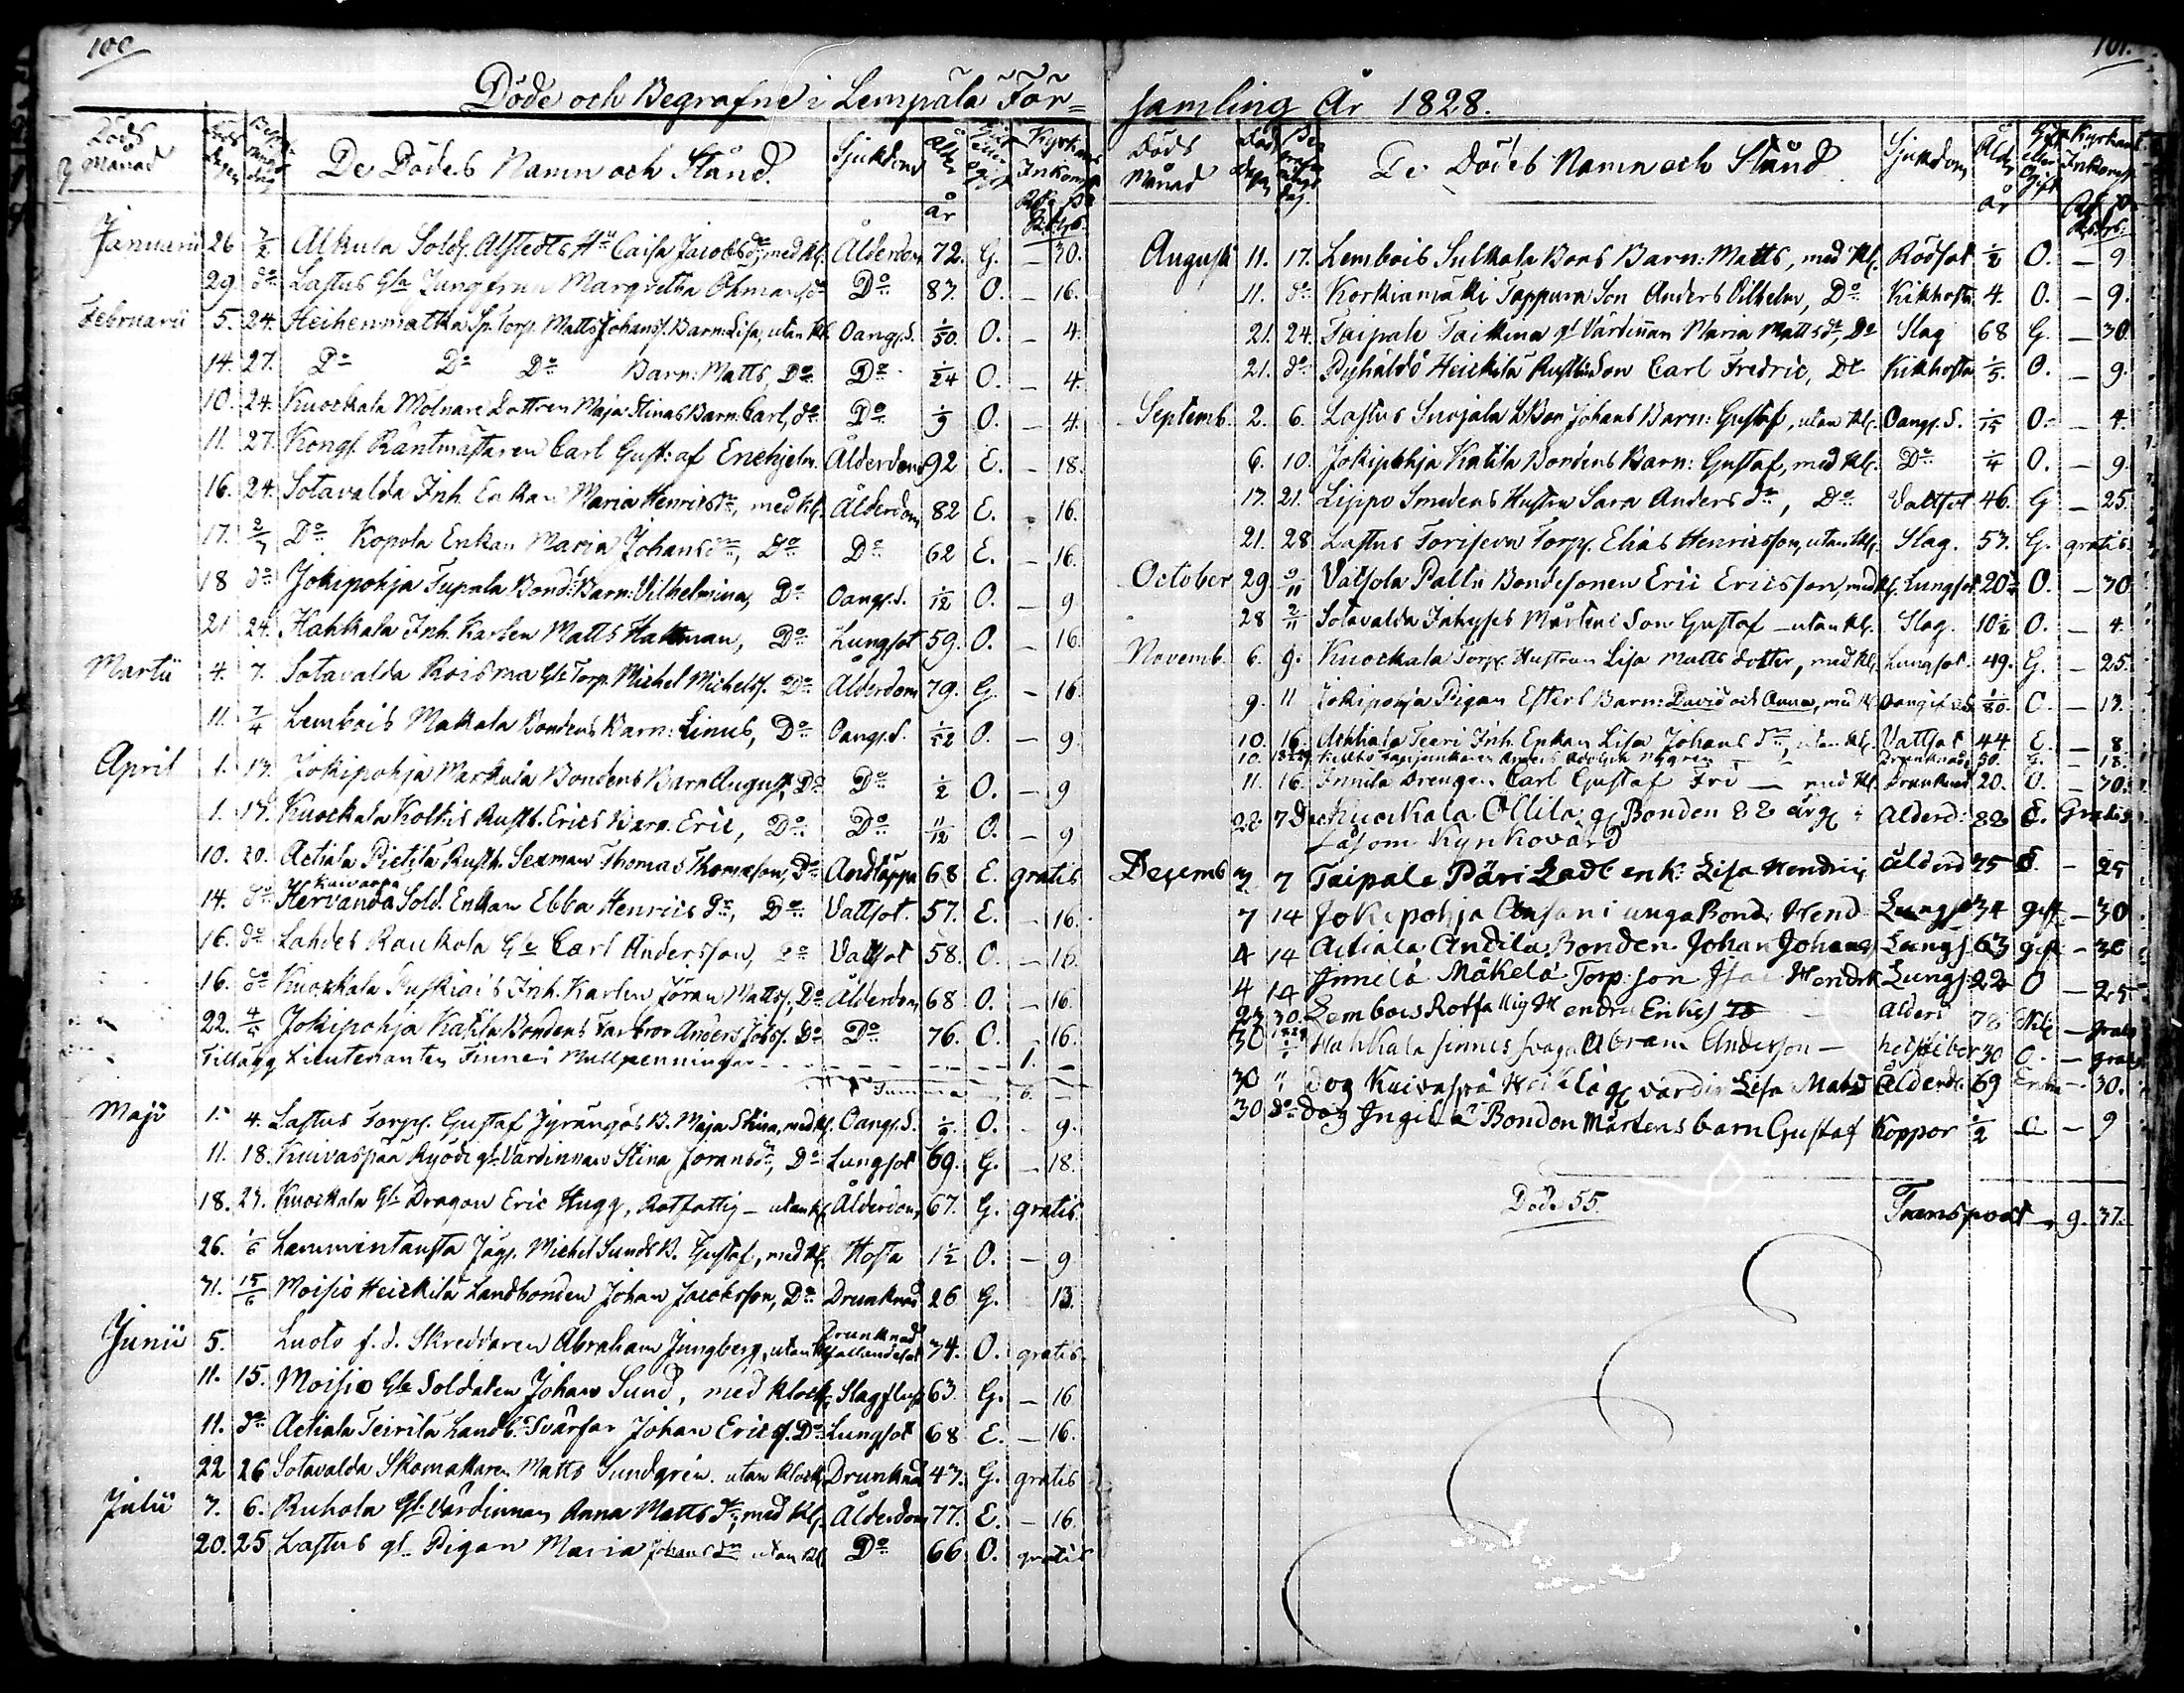 100
Döde och Begrafne i Lempäla För=
Döds Månad De Dödes Namn och Stånd. Sjukdom Ålder år Kyrkans Inkomst
Januarii 26 2/2 Alkula Sold. Alstedts Hu Caisa Jacobsdr, med kl. Ålderdom 72. G. – 30.
29 do Lastus Gla Jungfrun Margretha Öhmansdr Do 87. O. – 16.
Februarii 5. 24. Heihenmatka Torp. Matts Johanss. Barn: Lisa, utan kl. Oang. S. 1/50. O. – 4.
14. 27. Do Do Do Barn: Matts, Do Do 1/24 O. – 4.
10. 24. Kuockala Molnare Dottren Maja Stinas Barn: Carl, do Do O. – 4.
11. 27. Kongl. Räntmästaren Carl Gust: af Enehjelm. Ålderdom 92 E. – 18.
16. 24. Sotavalda Inh. Enkan Maria Henricsdr, med kl. Ålderdom 82 E. – 16.
17. 2/3 Do Kopola Enkan Maria Johansdr, Do Do 62 E. – 16.
18 do Jokipohja Tupala Bond: Barn: Vilhelmina, Do Oang. S. 1/12 O. – 9
21 24. Hahkala Inh. Karlen Matts Hakman, Do Lungsot 59. O. – 16.
Martii 4. 7. Sotavalda Roisma Gle Torp. Michel Michelss. Do Ålderdom 79. G. – 16.
11. 7/4 Lembois Makala Bondens Barn: Linus, Do Oang. S. 1/52 O. – 9
April 1. 13. Jokipohja Markula Bondens Barn August, Do Do 1/2 O. – 9
1. 13. Kuockala Kolkis Rusth. Erics Barn. Eric, Do Do 11/12 O. – 9
10. 20. Aetiala Pietila Rusth. Sexman Thomas Thomasson, Do Andtäppa 68 E. gratis
14. do Hervanda Sold. Enkan Ebba Henrics dr, Do Vattsot. 57. E. – 16.
16. do Lahdes Raukola Gle Carl Andersson, Do Vattsot 58. O. – 16.
16. do Kuockala Ruskiais Inh. Karlen Jöran Mattss, Do Ålderdom 68 O. – 16.
22. 4/5 Jokipohja Katila Bondens Farbror Anders Do Do 76. O. – 16.
Tillägg Lieutenanten Finnes Mullpenningar – 1. –
Summa 6. –
Majo 1. 4. Lastus Torpp. Gustaf Jyrängös B. Maja Stina, med kl. Oang. S. O. – 9.
11. 18. Kuivaspää Ryödi gl. Värdinnan Stina Joransdr, Do Lungsot 69. G. – 18.
18. 23. Kuockala Gle Dragon Eric Hugg, Rotfattig – utan kl. Ålderdom 67. G. gratis
26. 1/6 Lammintausta Jäg. Michel Sunds B. Gustaf, med kl. Hosta 1½ O. – 9
31. 15/6 Moisio Heickilä Landbonden Johan Jacobsson, Do Drunknad 26 G. 13.
Junii 5. Luoto f. d. Skreddaren Abraham Jungberg, utan kl. Drunknad fallandesot 74. O. gratis.
11. 15. Moisio Gle Soldaten Johan Sund, med klock Slagfluss 63. G. – 16
11. do Aetiala Teirila Landb. Svärfar Johan Erics s. Do Lungsot 68 E. – 16.
22 26 Sotavalda Skomakaren Matts Sundgrén. utan klock Drunknad 43. G. gratis
Julii 3. 6. Ruhola gl. Värdinnan Anna Matts dr, med kl. Ålderdom 77. E. – 16.
20. 25 Lastus gl. Pigan Maria Johans dr utan kl. Do 66 O. gratis
101.
samling År 1828.
Döds Månad De Dödes Namn och Stånd Sjukdom Ålder år Kyrkans Inkomst
August 11. 17. Lembois Sulkala Bons Barn: Matts, med kl. Rödsot ½ O. – 9
11. do Korkiamäki Tappura Son Anders Vilhelm, Do Kikhosta 4. O. – 9.
21. 24. Taipale Taikina gl Värdinnan Maria Matts dr, Do Slag 68 G. – 30.
21. do Pyhäldö Heickilä Rusth. Son Carl Fredric, Do Kikhosta O. – 9.
Septemb. 2. 6. Lastus Suojala Bon Johans Barn: Gustaf, utan kl. Oang. S. 1/15 O. – 4.
6. 10. Jokipohja Katila Bondens Barn: Gustaf, med kl. Do ¼ O. – 9.
17. 21. Lippo Smedens Hustru Sara Anders dr, Do Vattsot 46. G – 25.
21. 28 Lastus Toriseva Torp. Elias Henricsson, utan kl. Slag. 53. G. gratis.
October 29 9/11 Vatsola Paltti Bondesonen Eric Ericsson, med kl. Lungsot 20½ O. – 30
28 2/11 Sotavalda Inhyses Mårtens Son Gustaf – utan kl. Slag. 10½ O. – 4.
Novemb. 6. 9. Kuockala Torp. Hustrun Lisa Matts dotter, med kl. Lungsot. 49. G. – 25.
9. 11 Jokipohja Pigan Esters Barn: David och Anna, med kl. Oangif. 1/80. O. – 13.
10. 16. Ahkala Teeri Inh. Enkan Lisa Johans dr, utan kl. Vattsot 44. E. – 8.
10. Anders Adolph Nygren Drunknad 50. G. – 18.
11. 16. Innila Drengen Carl Gustaf Fri – med kl. Drunknad 20. O. – 30.
22 7 Dec Kuockala Ollila g. Bonden 82 årg Ålderd: 82 E. Gratis
Såsom Kyrkovärd
Decemb 3 7 Taipale Päri Ladb enk: Lisa Hendric Ålderd 75 E. – 25
7 14 Jokipohja Ansani unga Bond: Hend Lungs 34 gift – 30
4 14 Aetiala Andila Bonden Johan Johans Lungs 63 gift – 30
4 14 Innilä Mäkelä Torp. son Isac Hendr Lungs: 22 O – 25
23 30. Lembois Rotfattig Hendric Erikss Alderd 78 – gratis
30 Hahkala Abram Anderson – 30 O. – gratis
30 Kuivaspä Heikilä g. värdin Lisa Mats Ålderd. 69 Enka – 30.
30 do Ingilä Bonden Mårtens barn Gustaf Koppor ½ O – 9
Döde 55. Transport 9. 37.